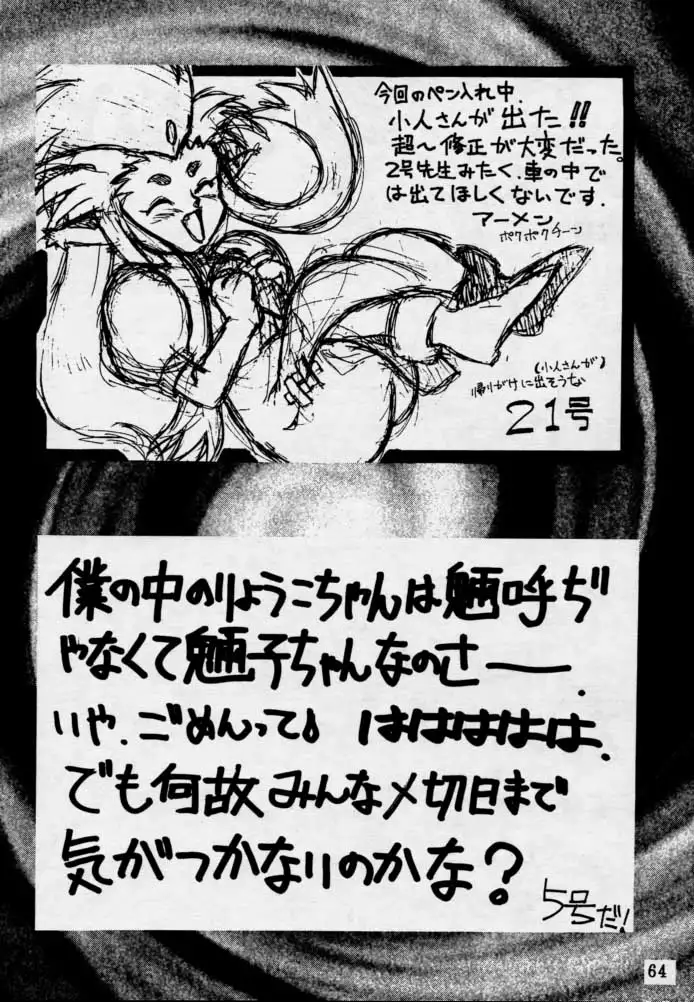 今回のペン入れ中、
小人さんが出た!!
超〜修正が大変だった。
2号先生みたく、車の中で
は出てほしくないです。
アーメン
ポクポクチーン
(小人さんが)
帰りがけに出そうな
21号
僕の中のりょうこちゃんは魎呼ぢ
ゃなくて魎子ちゃんなのさー.
いや、ごめんって♪ はははははは.
でも何故みんな〆切日まで
気がつかないのかな?
5号だ!
64